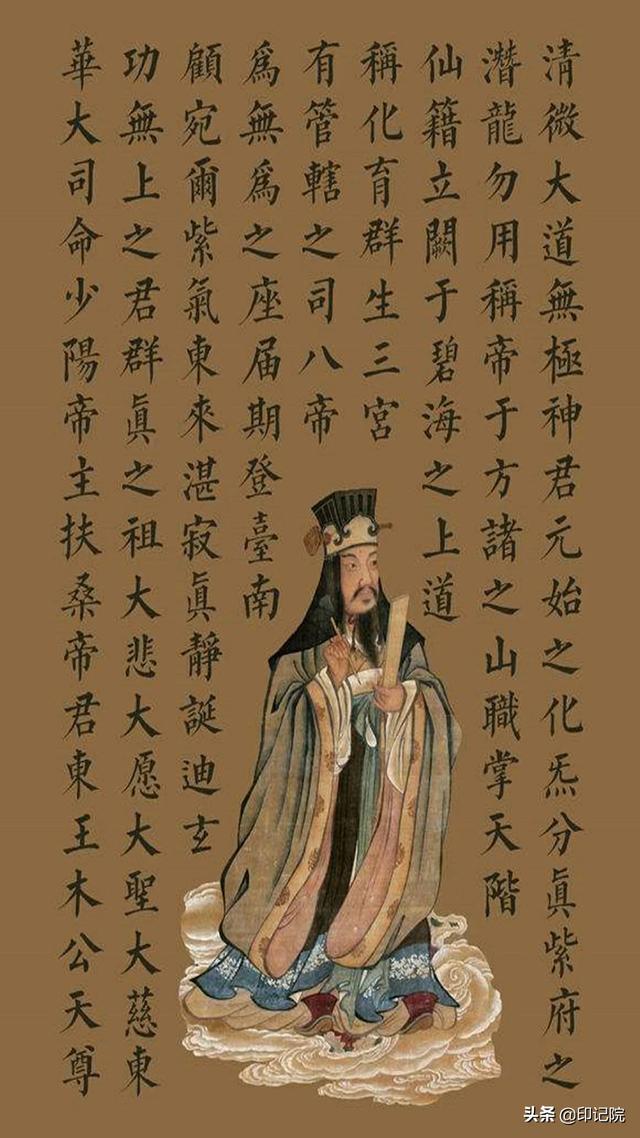 清微大道無極神君元始之化炁分眞紫府之
潛龍勿用稱帝于方諸之山職掌天階
仙籍立闕于碧海之上道
稱化育群生三宮
有管轄之司八帝
爲無爲之座届期登臺南
顧宛爾紫氣東來湛寂眞靜誕迪玄
功無上之君群眞之祖大悲大愿大聖大慈東
華大司命少陽帝主扶桑帝君東王木公天尊
头条 @印记院